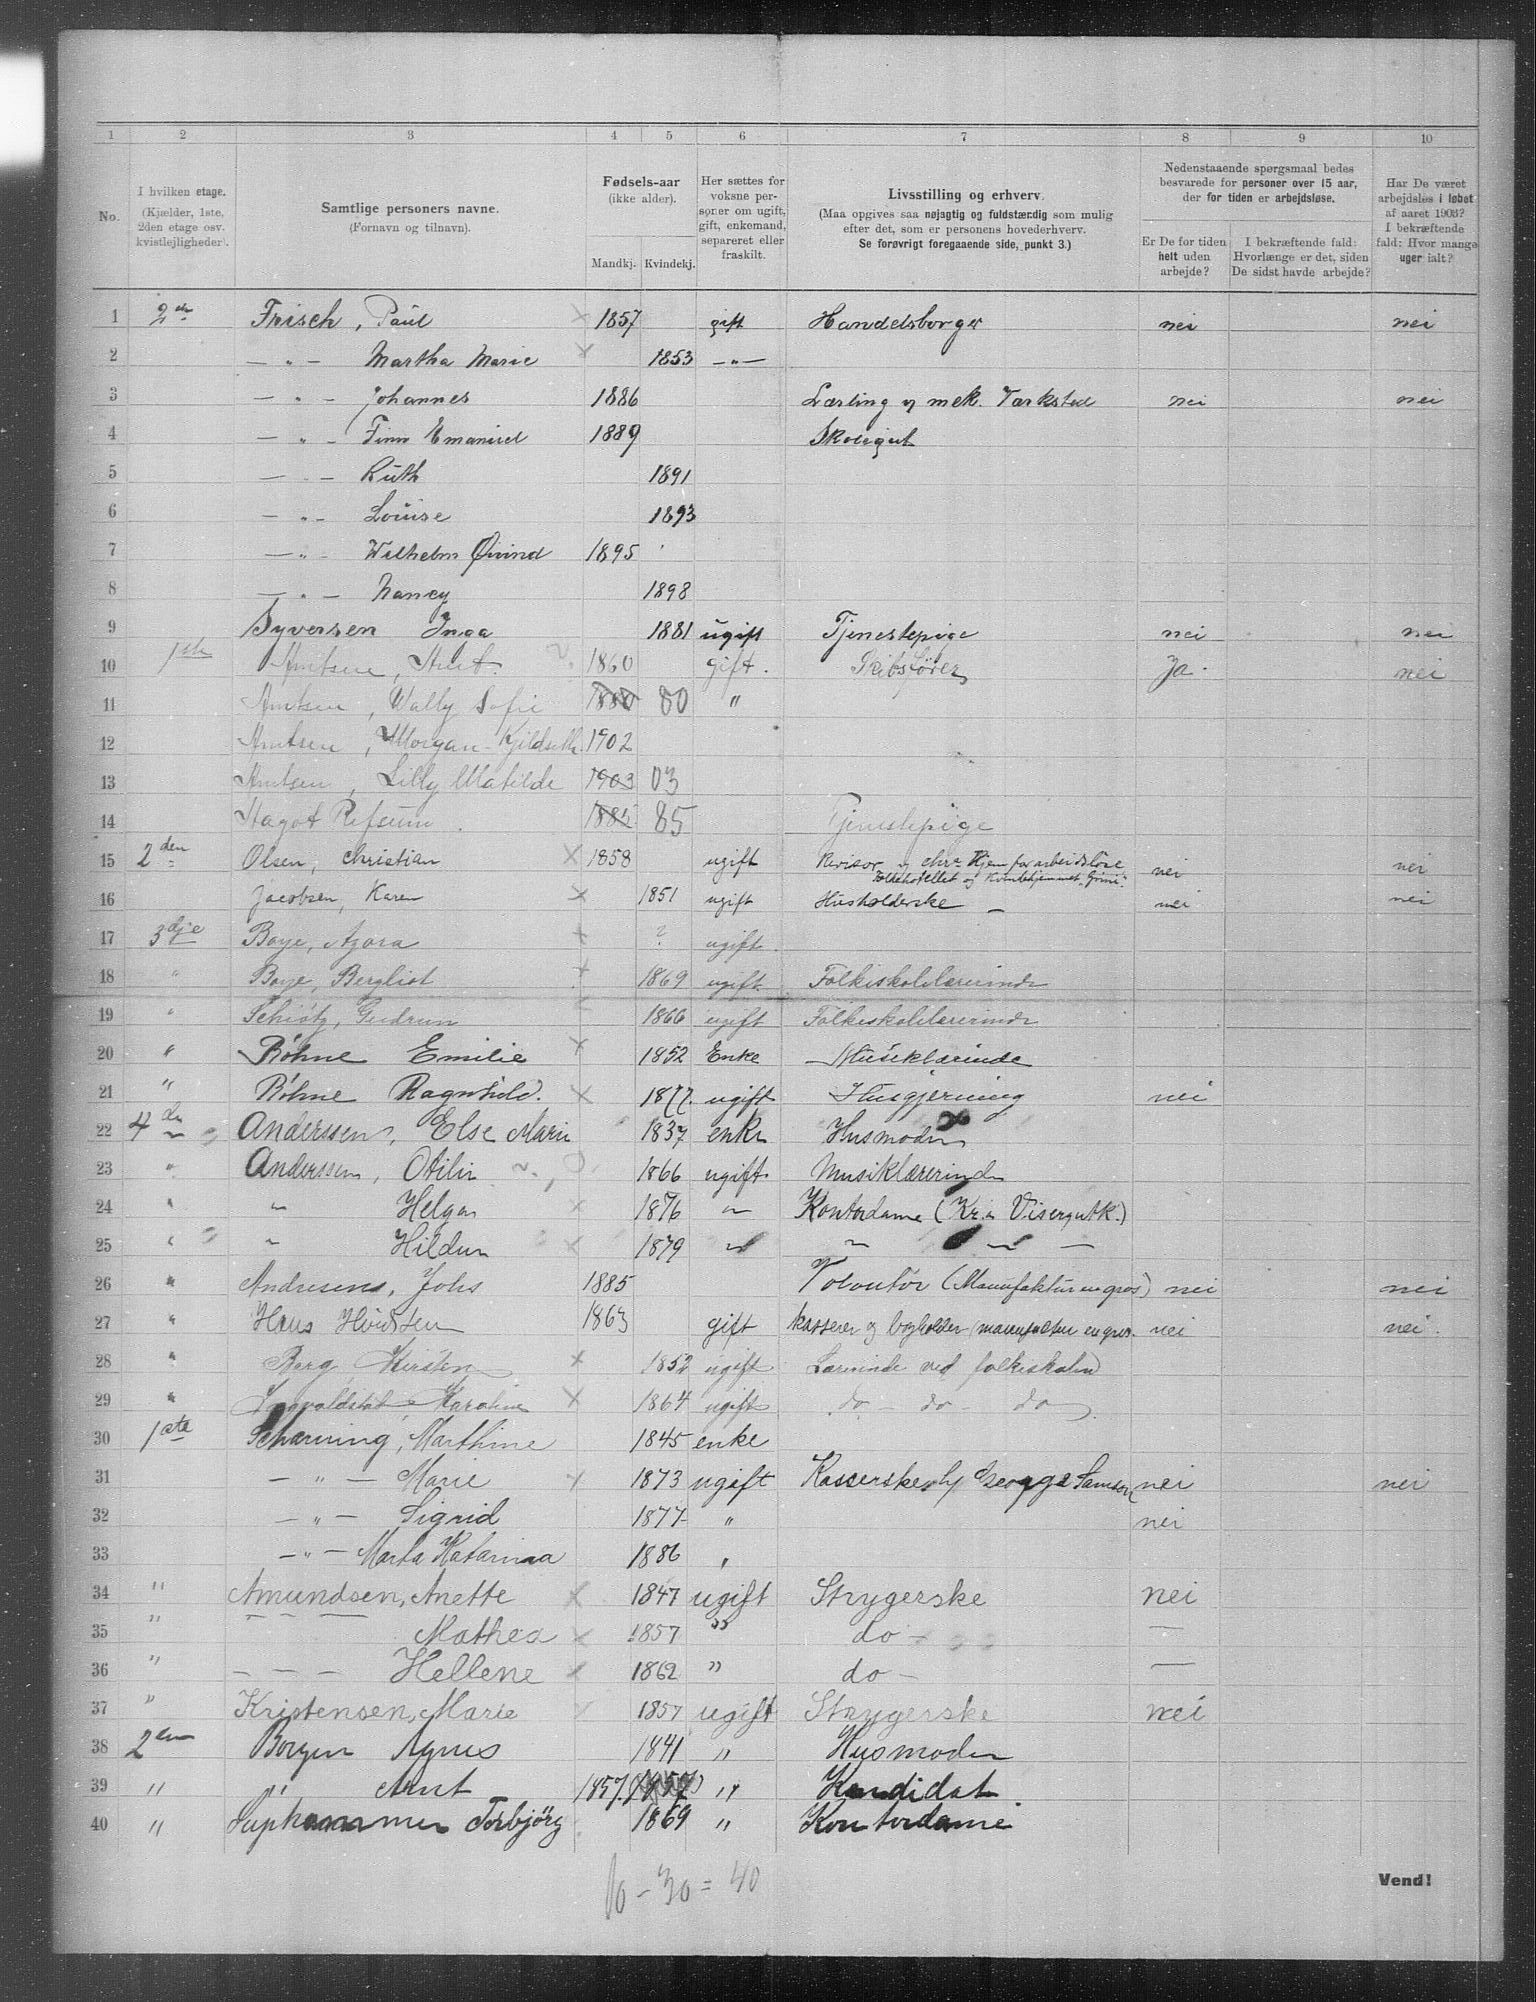 1 2 3 4 5 6 7 8 9 10
No.
I hvilken etage.
(Kjælder, 1ste,
2den etage osv.
kvistlejligheder).
Samtlige personers navne.
(Fornavn og tilnavn).
Fødsels-aar
(ikke alder).
Mandkj. Kvindekj.
Her sættes for
voksne per-
soner om ugift,
gift, enkemand,
separeret eller
fraskilt.
Livsstilling og erhverv.
(Maa opgives saa nøjagtig og fuldstændig som mulig
efter det, som er personens hovederhverv.
Se forøvrigt foregaaende side, punkt 3.)
Nedenstaaende spørgsmaal bedes
besvarede for personer over 15 aar,
der for tiden er arbejdsløse.
Er De for tiden
helt uden
arbejde?
I bekræftende fald:
Hvorlænge er det, siden
De sidst havde arbejde?
Har De været
arbejdsløs i løbet
af aaret 1903?
I bekræftende
fald: Hvor mange
uger ialt?
1 2den Frisch, Paul × 1857 gift Handelsborger nei nei
2 — " — Martha Marie × 1853 — " —
3 — " — Johannes 1886 Lærling mek. Værksted nei nei
4 — " — Finn Emanuel 1889 Skolegut
5 — " — Ruth 1891
6 — " — Louise 1893
7 — " — Wilhelm Øivind 1895
8 — " — Nancy 1898
9 Syversen Inga 1881 ugift Tjenestepige nei nei
10 1ste Arntsen, Arnt 1860 gift. Skibsfører Ja. nei
11 Arntsen, Wally Sofie 1880 80 "
12 Arntsen, Morgan 1902
13 Arntsen, Lilly Matilde 1903 03
14 Hagot Refsum 1885 85 Tjenestepige
15 2den Olsen, Christian × 1858 ugift Revisor Hjem for arbeidsløse nei nei
Folkehotellet og Kvindehjemmet
16 Jacobsen, Karen × 1851 ugift Husholderske — nei nei
17 3dje Boye, Agora × ? ugift.
18 " Boye, Bergliot × 1869 ugift Folkeskolelærerinde
19 " Schiøtz, Gudrun 1866 ugift Folkeskolelærerinde
20 " Bøhne Emilie × 1852 Enke Musiklærinde
21 " Bøhne Ragnhild. × 1877. ugift Husgjerning nei
22 4de Anderssen, Else Marie 1837 enke Husmoder
23 " Anderssen, Otilie 1866 ugift. Musiklærerinde
24 " " Helga × 1876 " Kontordame (Kr.a Visergutk.)
25 " " Hildur × 1879 " " " —
26 " Andresen, Johs 1885 Volontør (Manufaktur engros) nei nei
27 " Hans Hvidsten 1863 gift kasserer og bogholder (manufaktur engros. nei nei.
28 " Berg, Kirsten × 1852 ugift Lærerinde ved folkeskolen
29 " Karoline × 1864 ugift do — do — do
30 1ste Scharning, Marthine 1845 enke
31 — " — Marie × 1873 ugift Kasserske h/ George Samson nei nei
32 — " — Sigrid 1877 " nei
33 — " — Marta Katarina 1886 "
34 " Amundsen, Anette × 1847 ugift Strygerske nei
35 " — — — Mathea × 1857 " do — —
36 " — — — Hellene × 1862 " do — —
37 " Kristensen, Marie 1857 ugift Strygerske nei
38 2den Borgen Agnes 1841 " Husmoder
39 " " Arnt 1857. (1857) " Kandidat
40 " Torbjørg 1869 " Kontordame
10 – 30 = 40
Vend!